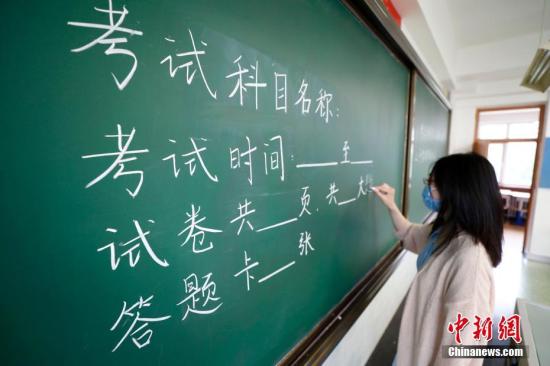 考试科目名称:
考试时间:___至___
试卷共__页,共__大题
答题卡__张
中新网
www.
Chinanews.com